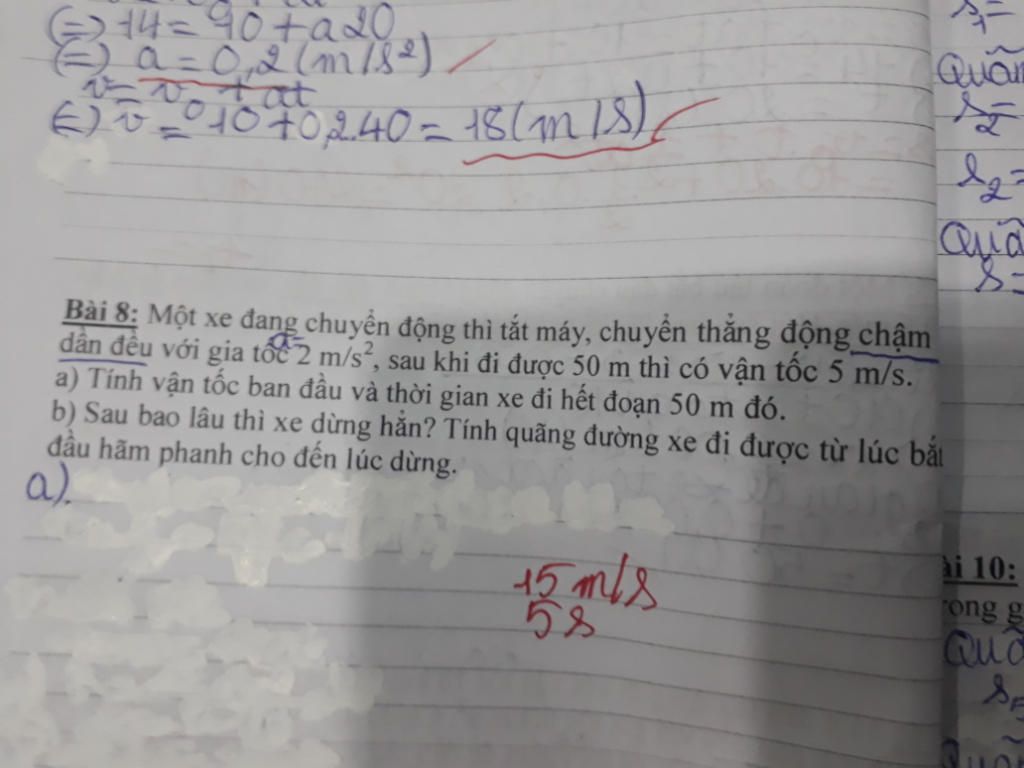 (=) 14 = 10 + a20
(=) a = 0,2 (m/s²)
v = v₀ + at
(=) v = 10 + 0,2.40 = 18 (m/s)
Bài 8: Một xe đang chuyển động thì tắt máy, chuyển thẳng động chậm
a =
dần đều với gia tốc 2 m/s², sau khi đi được 50 m thì có vận tốc 5 m/s.
a) Tính vận tốc ban đầu và thời gian xe đi hết đoạn 50 m đó.
b) Sau bao lâu thì xe dừng hẳn? Tính quãng đường xe đi được từ lúc bắt
đầu hãm phanh cho đến lúc dừng.
a).
15 m/s
5s
s₁ =
Quãn
s₂ =
s₂ =
Quã
s =
ài 10:
rong g
Quã
s₅
Quãn